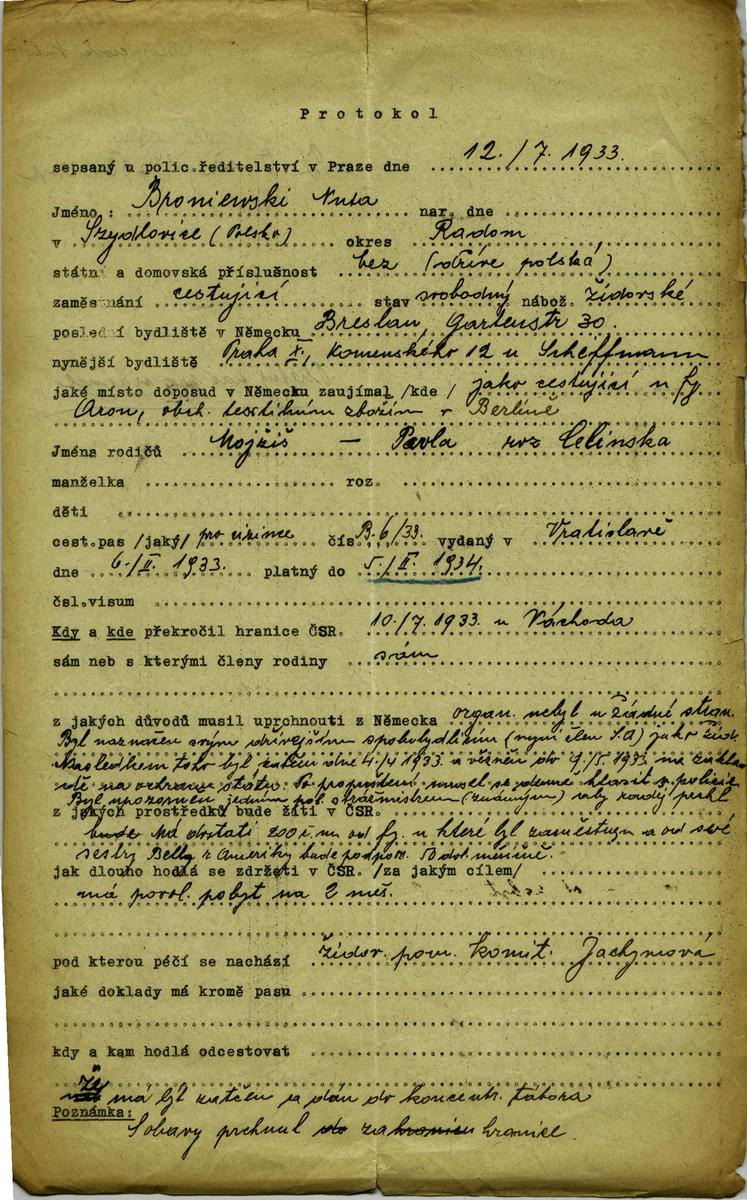 Protokol
sepsaný u polic.ředitelství v Praze dne 12./7. 1933.
Jméno: Broniewski Nuta nar. dne
v Szydlovice (Polsko) okres Radom
státní a domovská příslušnost bez (dříve polská)
zaměstnání cestující stav svobodný nábož. židovské
poslední bydliště v Německu Breslau, Gartenstr 30.
nynější bydliště Praha X., Komenského 12 u Scheffmann
jaké místo doposud v Německu zaujímal /kde/ jako cestující u fy
Aron, obch. textilním zbožím v Berlíně
Jména rodičů Mojžíš — Pavla roz Celinska
manželka roz.
děti
cest.pas /jaký/ pro cizince čís B.6/33. vydaný v Vratislavě
dne 6./II. 1933. platný do 5./II. 1934.
čsl.visum
Kdy a kde překročil hranice ČSR. 10./7. 1933 u Náchoda
sám neb s kterými členy rodiny sám
z jakých důvodů musil uprchnouti z Německa organ. nebyl u žádné stran.
Byl naznačen svým dřívějším spolubydlícím (nyní člen S.A) jako žid.
Následkem toho byl zatčen dne 4./4 1933 a vězněn do 9./5. 1933 na základě
na ochranu státu. Po propuštění musel se denně hlásit u policie
Byl upozorněn jedním pol. strážmistrem (známým) aby raději prchl
z jakých prostředků bude žíti v ČSR.
bude má dostati 200 i.m od fy. u které byl zaměstnán a od své
sestry Belly z Ameriky bude podpor. 10 dol. měsíčně.
jak dlouho hodlá se zdržeti v ČSR. /za jakým cílem/
má povol. pobyt na 2 měs.
pod kterou péčí se nachází židov. pom. komit. Jachymová
jaké doklady má kromě pasu
kdy a kam hodlá odcestovat
že má být zatčen a dán do koncentr. tábora
Poznámka:
S obavy prchnul do za hranice.